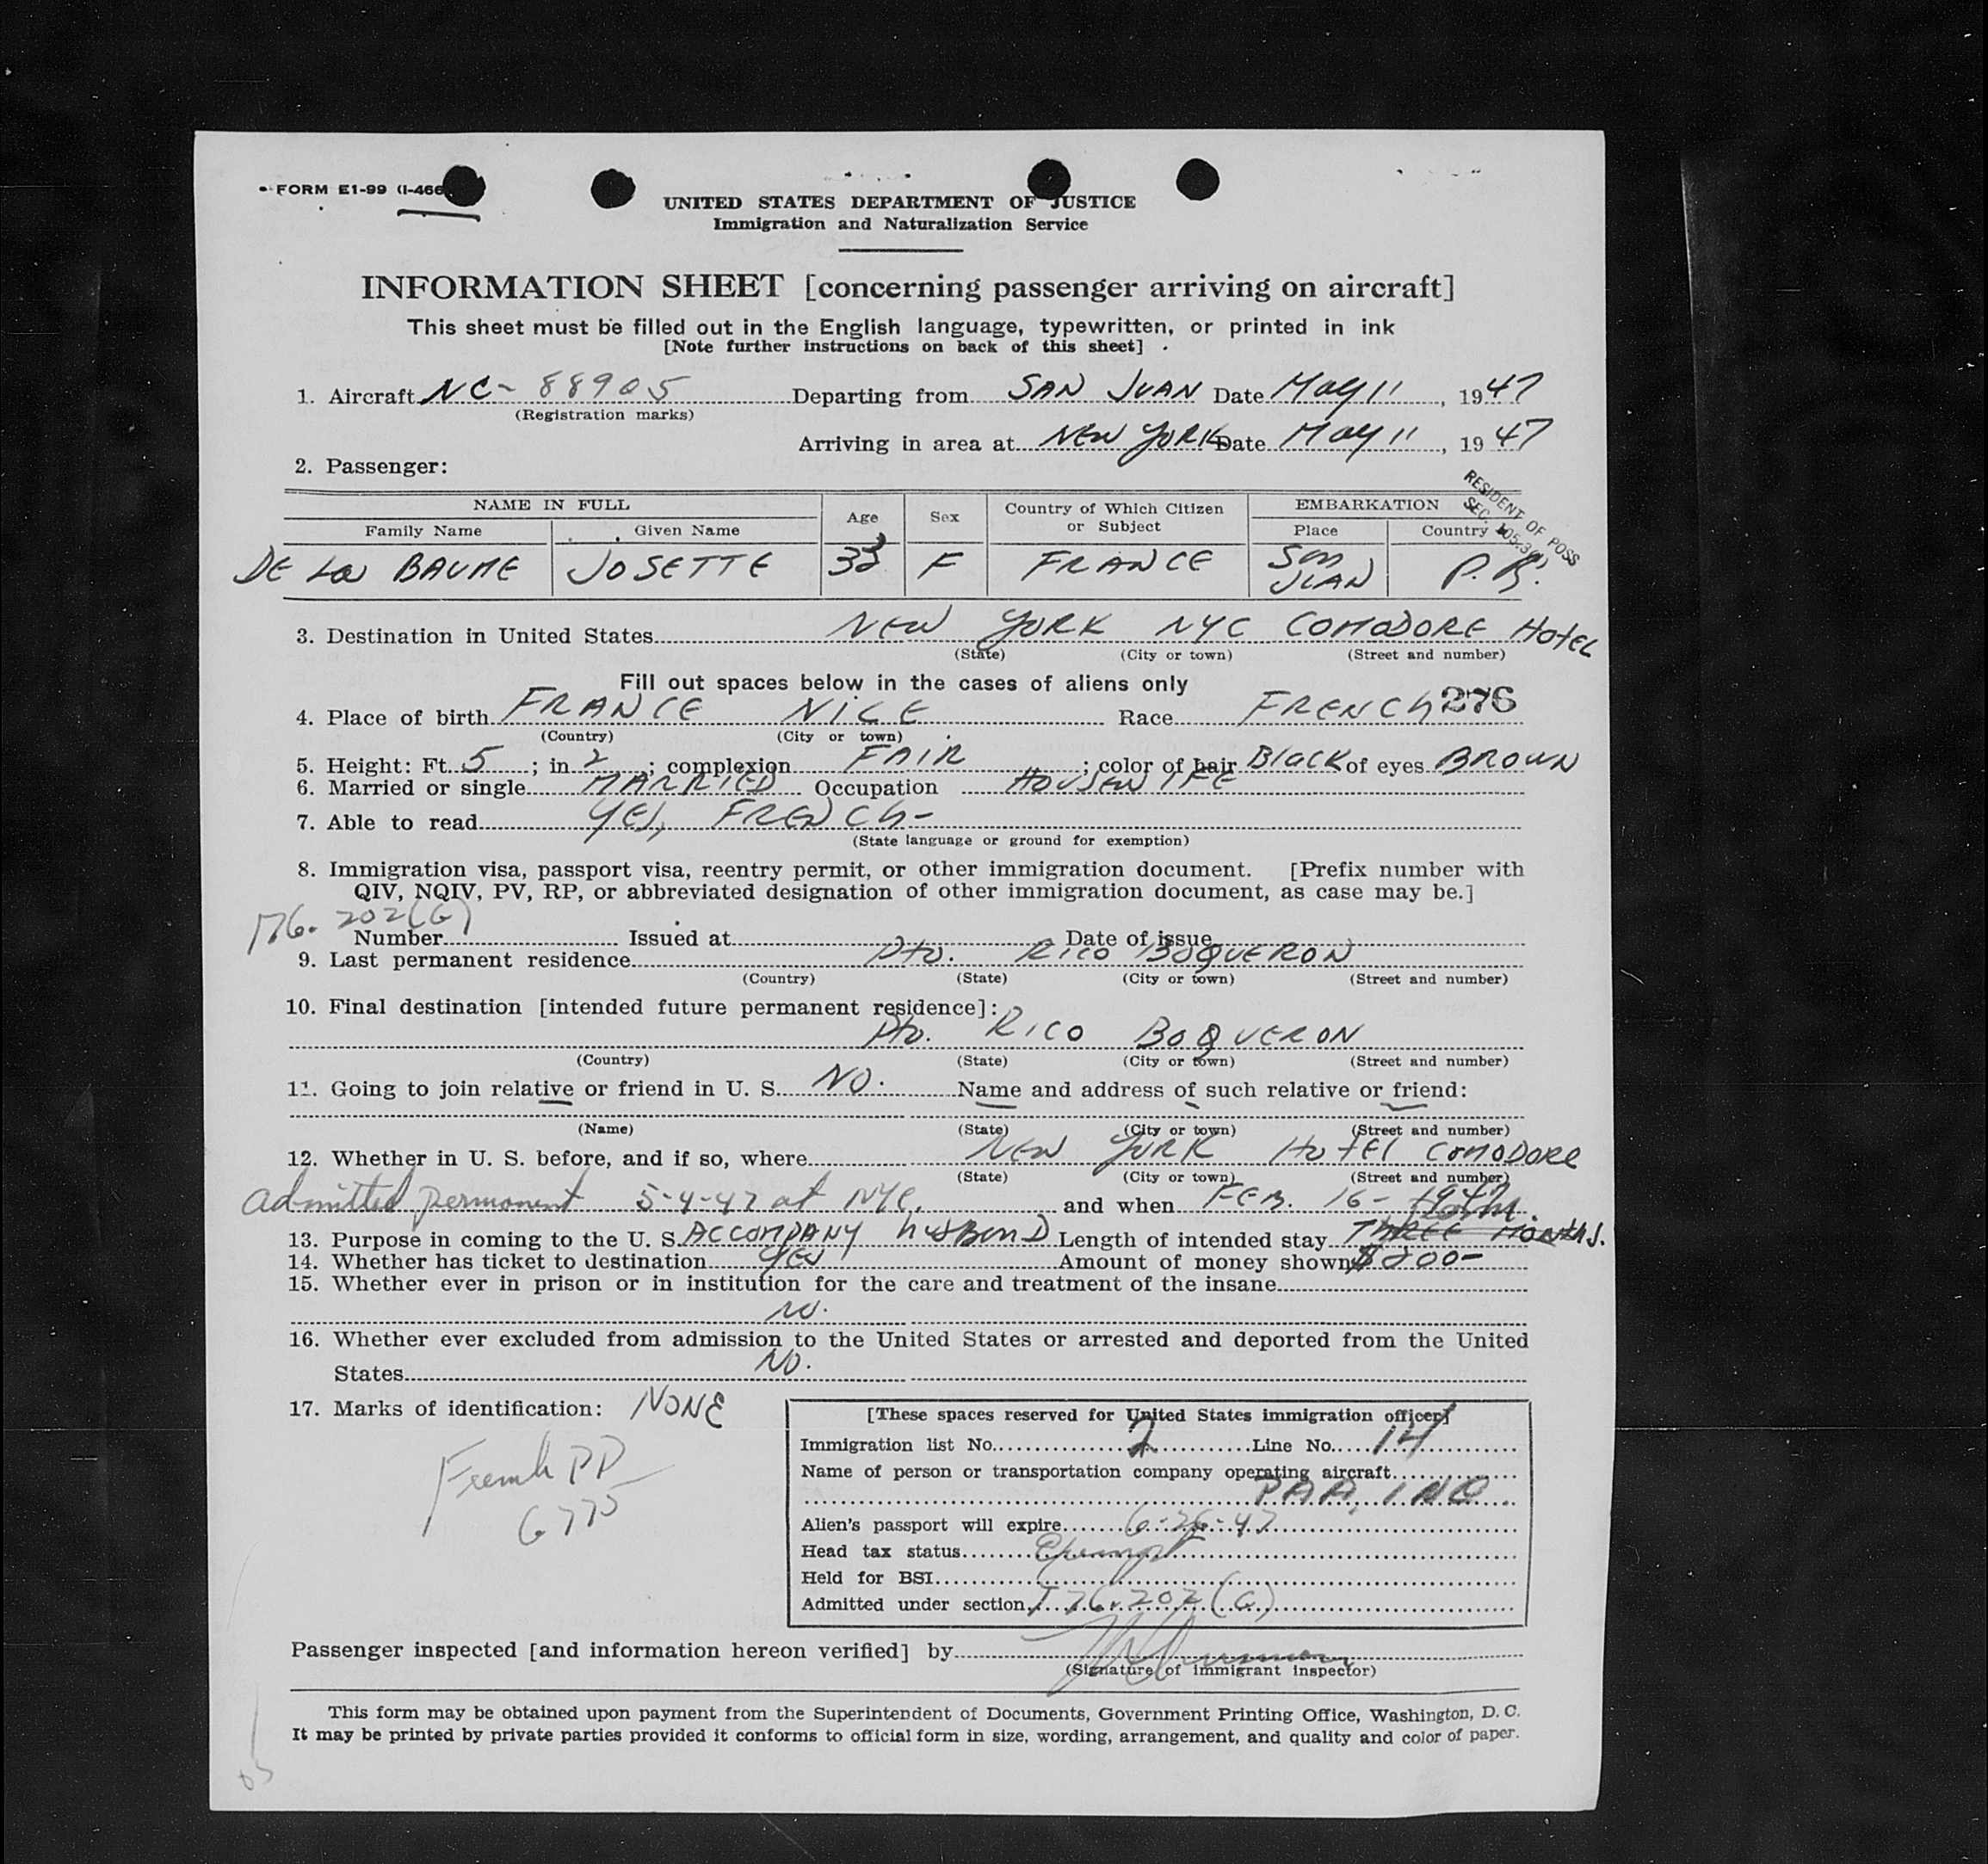 FORM E1-99 (I-466
UNITED STATES DEPARTMENT OF JUSTICE
Immigration and Naturalization Service
INFORMATION SHEET [concerning passenger arriving on aircraft]
This sheet must be filled out in the English language, typewritten, or printed in ink
[Note further instructions on back of this sheet]
1. Aircraft NC- 88905 Departing from SAN JUAN Date May 11, 1947
(Registration marks)
Arriving in area at NEW YORK Date MAY 11, 1947
2. Passenger:
RESIDENT OF POSS
NAME IN FULL Age Sex Country of Which Citizen or Subject EMBARKATION
Family Name Given Name Place Country
DE La BAUME JOSETTE 33 F FRANCE San JUAN P.R.
3. Destination in United States NEW YORK NYC COMODORE HOTEL
(State) (City or town) (Street and number)
Fill out spaces below in the cases of aliens only
4. Place of birth FRANCE NICE Race FRENCH 276
(Country) (City or town)
5. Height: Ft. 5; in 2; complexion FAIR; color of hair Black of eyes BROWN
6. Married or single MARRIED Occupation HOUSEWIFE
7. Able to read YES, FRENCH-
(State language or ground for exemption)
8. Immigration visa, passport visa, reentry permit, or other immigration document. [Prefix number with
QIV, NQIV, PV, RP, or abbreviated designation of other immigration document, as case may be.]
176. 202(G)
Number Issued at Date of issue
9. Last permanent residence Pto. RICO BOQUERON
(Country) (State) (City or town) (Street and number)
10. Final destination [intended future permanent residece]:
Pto. RICO BOQUERON
(Country) (State) (City or town) (Street and number)
11. Going to join relative or friend in U. S. NO. Name and address of such relative or friend:
(Name) (State) (City or town) (Street and number)
12. Whether in U. S. before, and if so, where NEW YORK HOTEL COMODORE
(State) (City or town) (Street and number)
admitted permanent 5-4-47 at NYC. and when FEB. 16-
13. Purpose in coming to the U. S. ACCOMPANY husBanD Length of intended stay THREE MONTHS.
14. Whether has ticket to destination YES Amount of money shown $200-
15. Whether ever in prison or in institution for the care and treatment of the insane
NO.
16. Whether ever excluded from admission to the United States or arrested and deported from the United
States NO.
17. Marks of identification: NONE
French PP
6775
[These spaces reserved for United States immigration officer]
Immigration list No. 2 Line No. 14
Name of person or transportation company operating aircraft
PAA, INC.
Alien's passport will expire 6-26-47
Head tax status Exempt
Held for BSI
Admitted under section 176.202(G)
Passenger inspected [and information hereon verified] by
(Signature of immigrant inspector)
This form may be obtained upon payment from the Superintendent of Documents, Government Printing Office, Washington, D. C.
It may be printed by private parties provided it conforms to official form in size, wording, arrangement, and quality and color of paper.